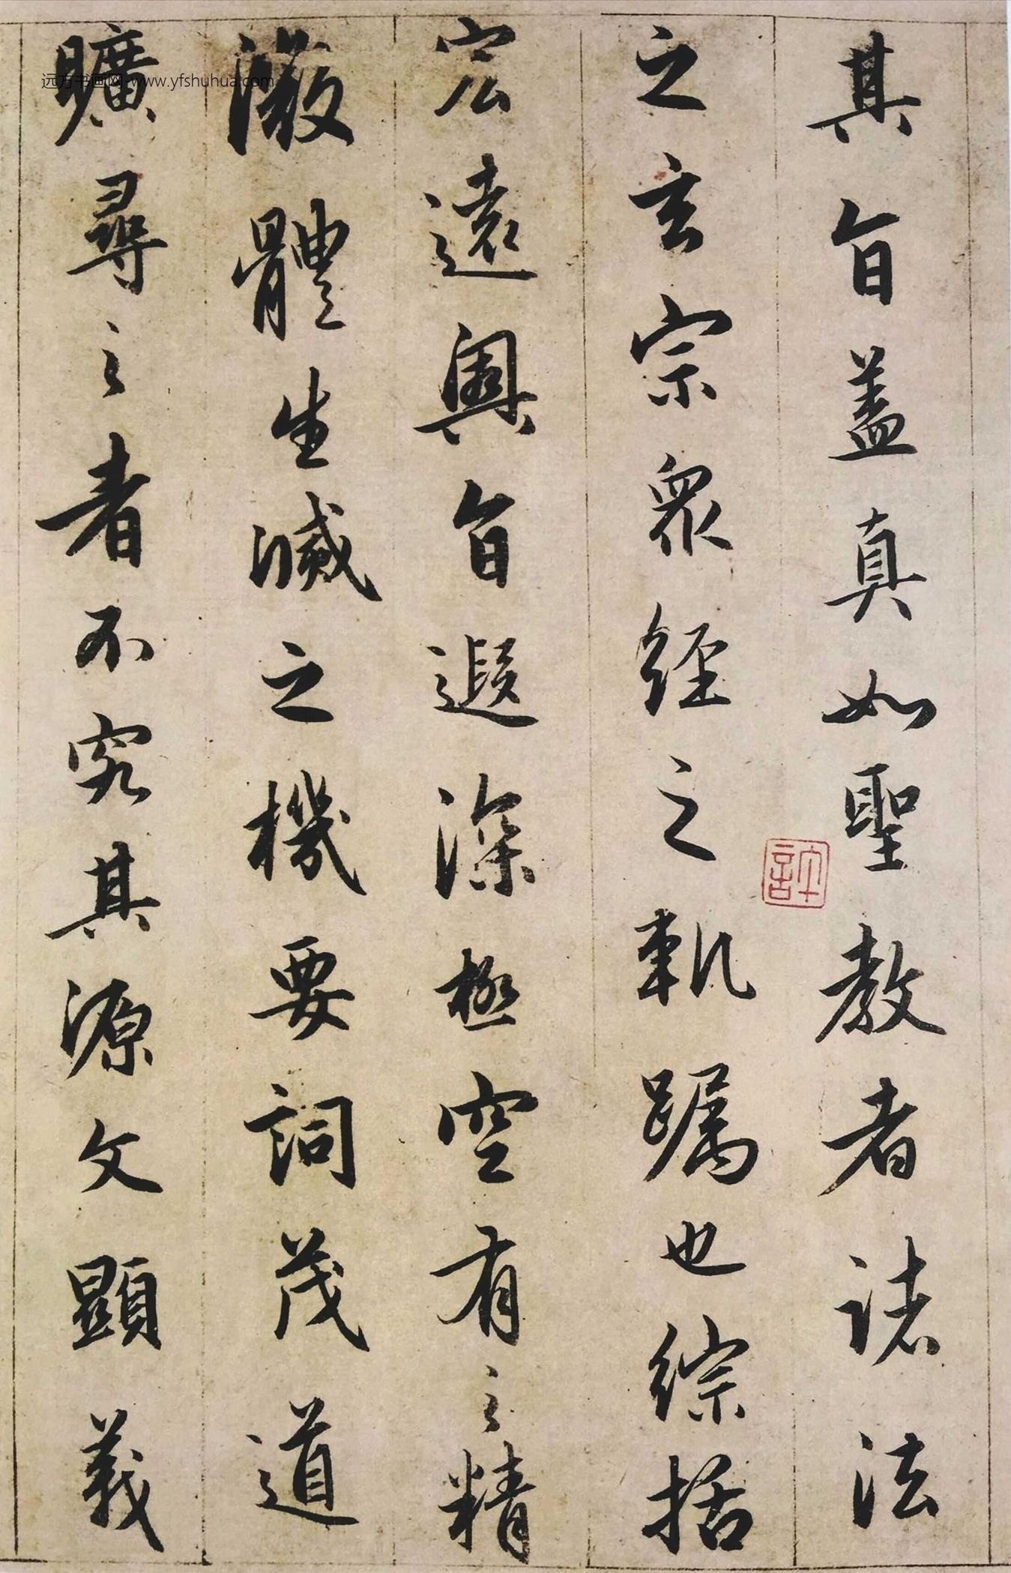 其旨蓋真如聖教者諸法
之玄宗眾經之軌躅也綜括
宏遠奧旨遐深極空有之精
微體生滅之機要詞茂道
曠尋之者不究其源文顯義
远方书画网 www.yfshuhua.com